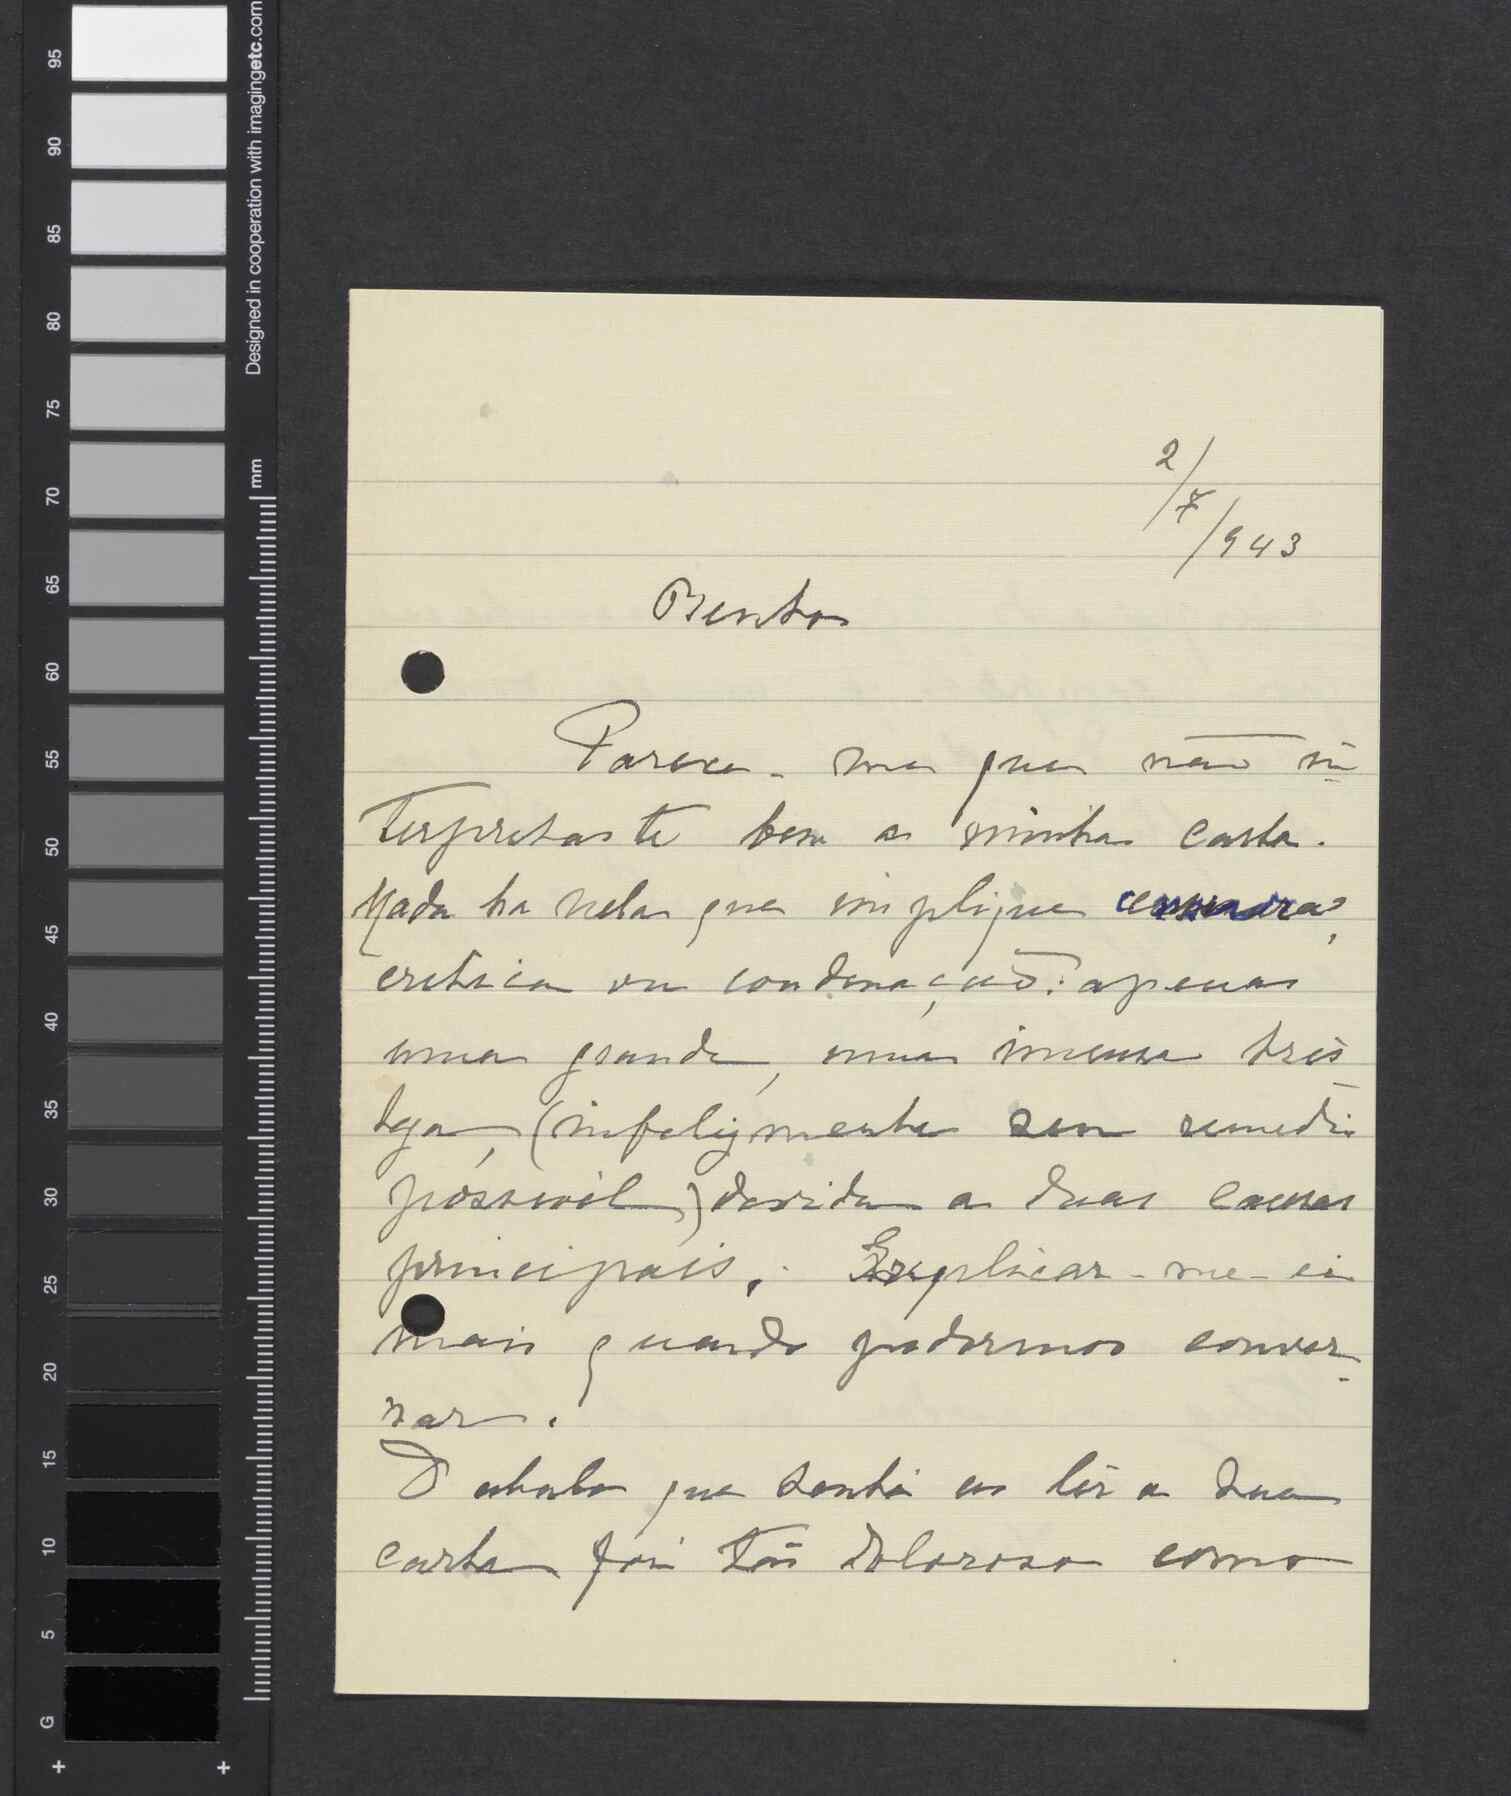 Designed in cooperation with imagingetc.com
mm
95
90
85
80
75
70
65
60
55
50
45
40
35
30
25
20
15
10
5
G
2/7/943
Bento
Parece-me que não in-
terpretaste bem a minha carta.
Nada ha nela que implique censura,
critica ou condenação: apenas
uma grande, uma imensa tris-
teza, (infelizmente sem remedio
possivel,) devida a duas causas
principais. Explicar-me-ei
mais quando podermos conver-
sar.
O abalo que senti ao lêr a tua
carta foi tão doloroso como